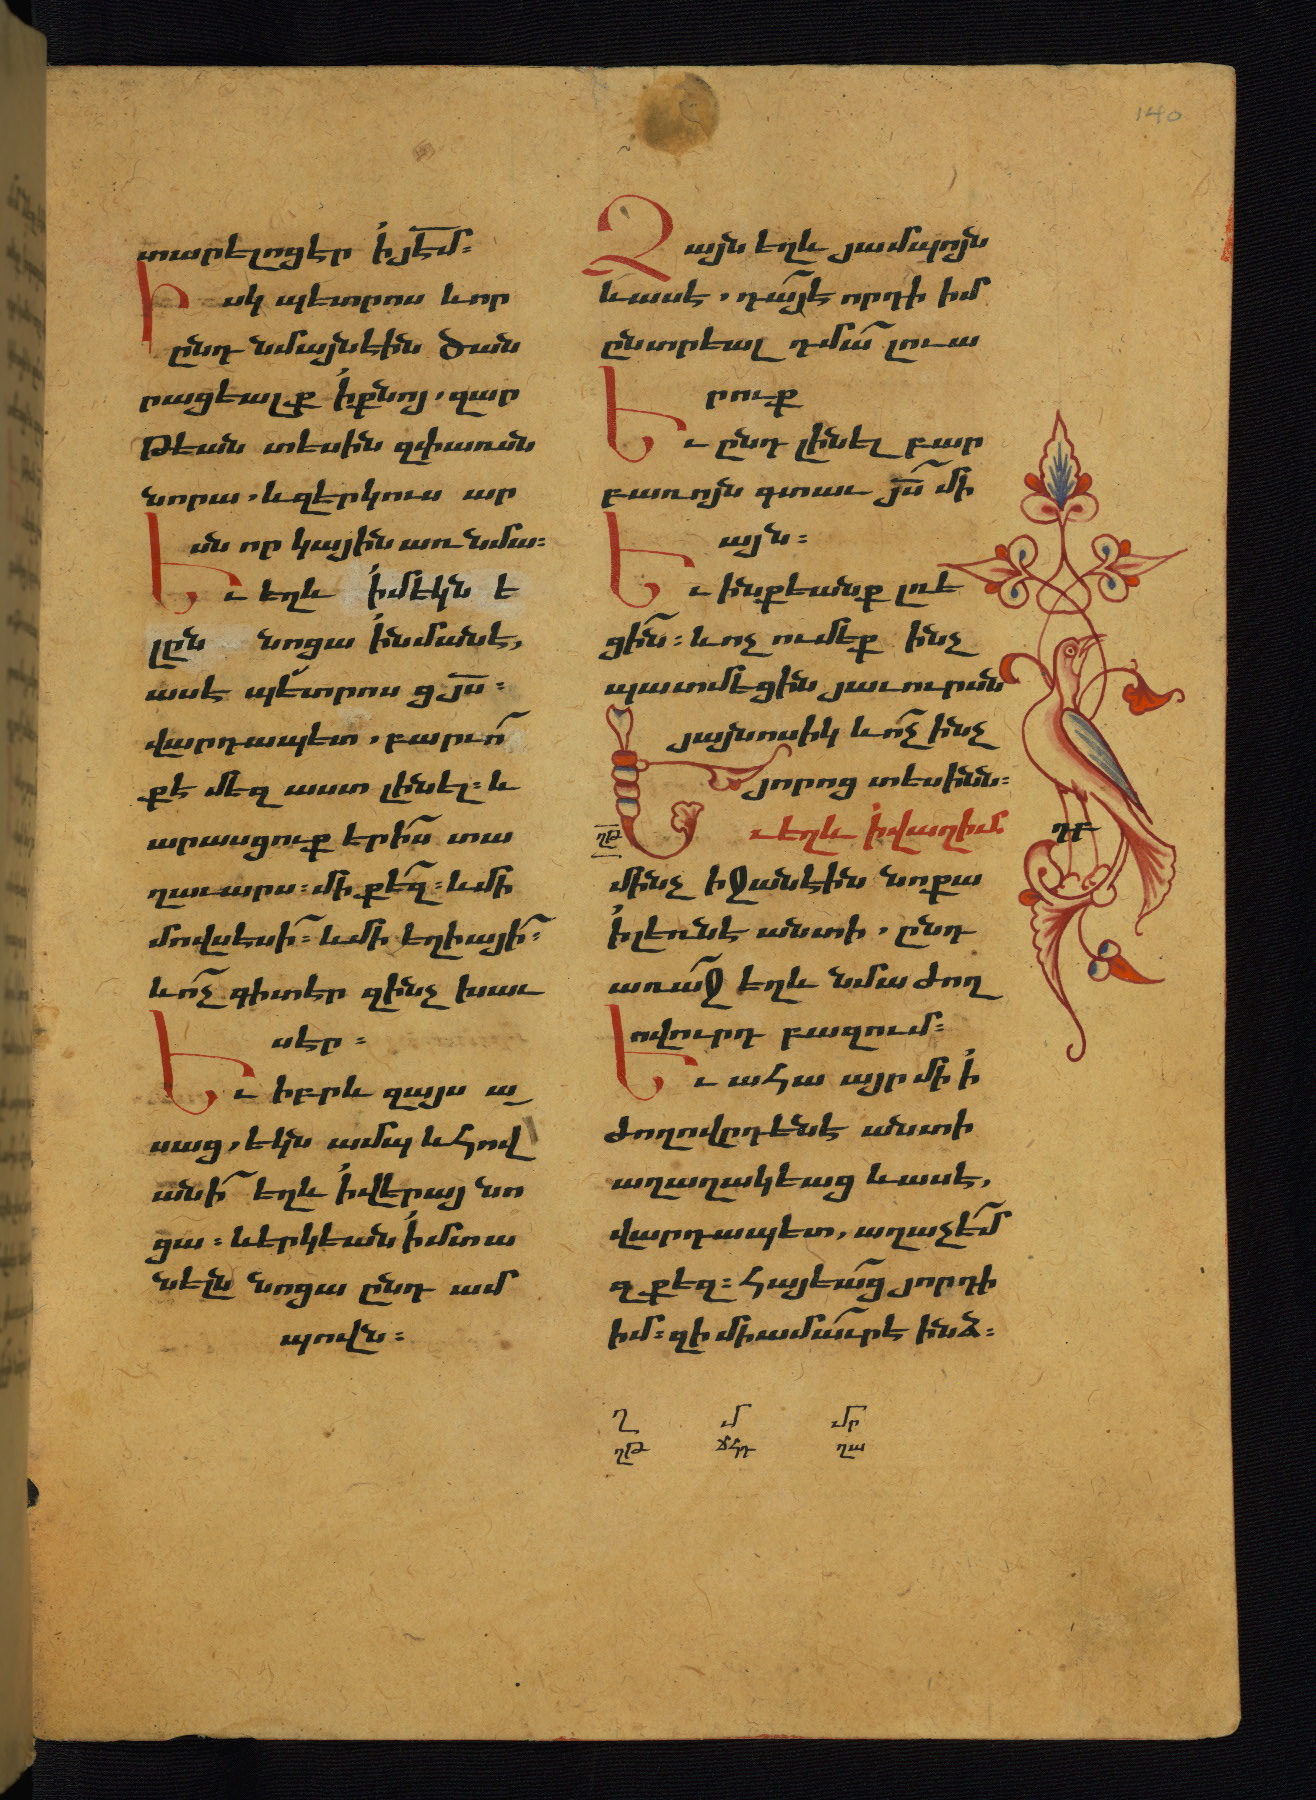 140
տարելոցէր ՛ի յէ՟մ։
Իսկ պետրոս և որ
ընդ նմայն էին ծան
րացեալք ՛ի քնոյ, զար
թեան տեսին զփառսն
նորա, և զերկուս ար
սն որ կային առ նմա։
Եւ եղև ՛ի մեկն ե
լըն նոցա ՛ի նմանէ,
ասէ պետրոս ց յս՟։
վարդապետ, բարւո՟
քէ մեզ աստ լինել։ և
արասցուք երի՟ս տա
ղաւարս։ մի քե՟զ։ և մի
մովսէսի՟։ և մի եղիայի՟։
և ո՟չ գիտէր զինչ խաւ
սէր։
Եւ իբրև զայս ա
սաց, եկն ամպ և հով
անի՟ եղև ՛ի վերայ նո
ցա։ և երկեան ՛ի մտա
նելն նոցա ընդ ամ
պովն։
Ձայն եղև յամպոյն
և ասէ, դա՟ յէ որդի իմ
ընտրեալ դմա՟ լուա
րուք
Եւ ընդ լինել բար
բառոյն գտաւ յս՟ մի
այն։
Եւ ինքեանք լռե
ցի՟ն։ և ոչ ումեք ինչ
պատմեցին յաւուրսն
յայնոսիկ և ո՟չ ինչ
յորոց տեսինն։
ղթ
Եւ եղև ՛ի վաղիւ.
ղբ
մինչ իջանէին նոքա
՛ի լեռնէ անտի, ընդ
առա՟ջ եղև նմա ժող
ովուրդ բազում։
Եւ ահա այր մի ՛ի
ժողովրդենէ անտի
աղաղակեաց և ասէ,
վարդապետ, աղաչե՟մ
զքեզ։ հայեա՟ց յորդի
իմ։ զի միամաւրէ ինձ։
ղ մ մր
ղթ ճհդ ղա